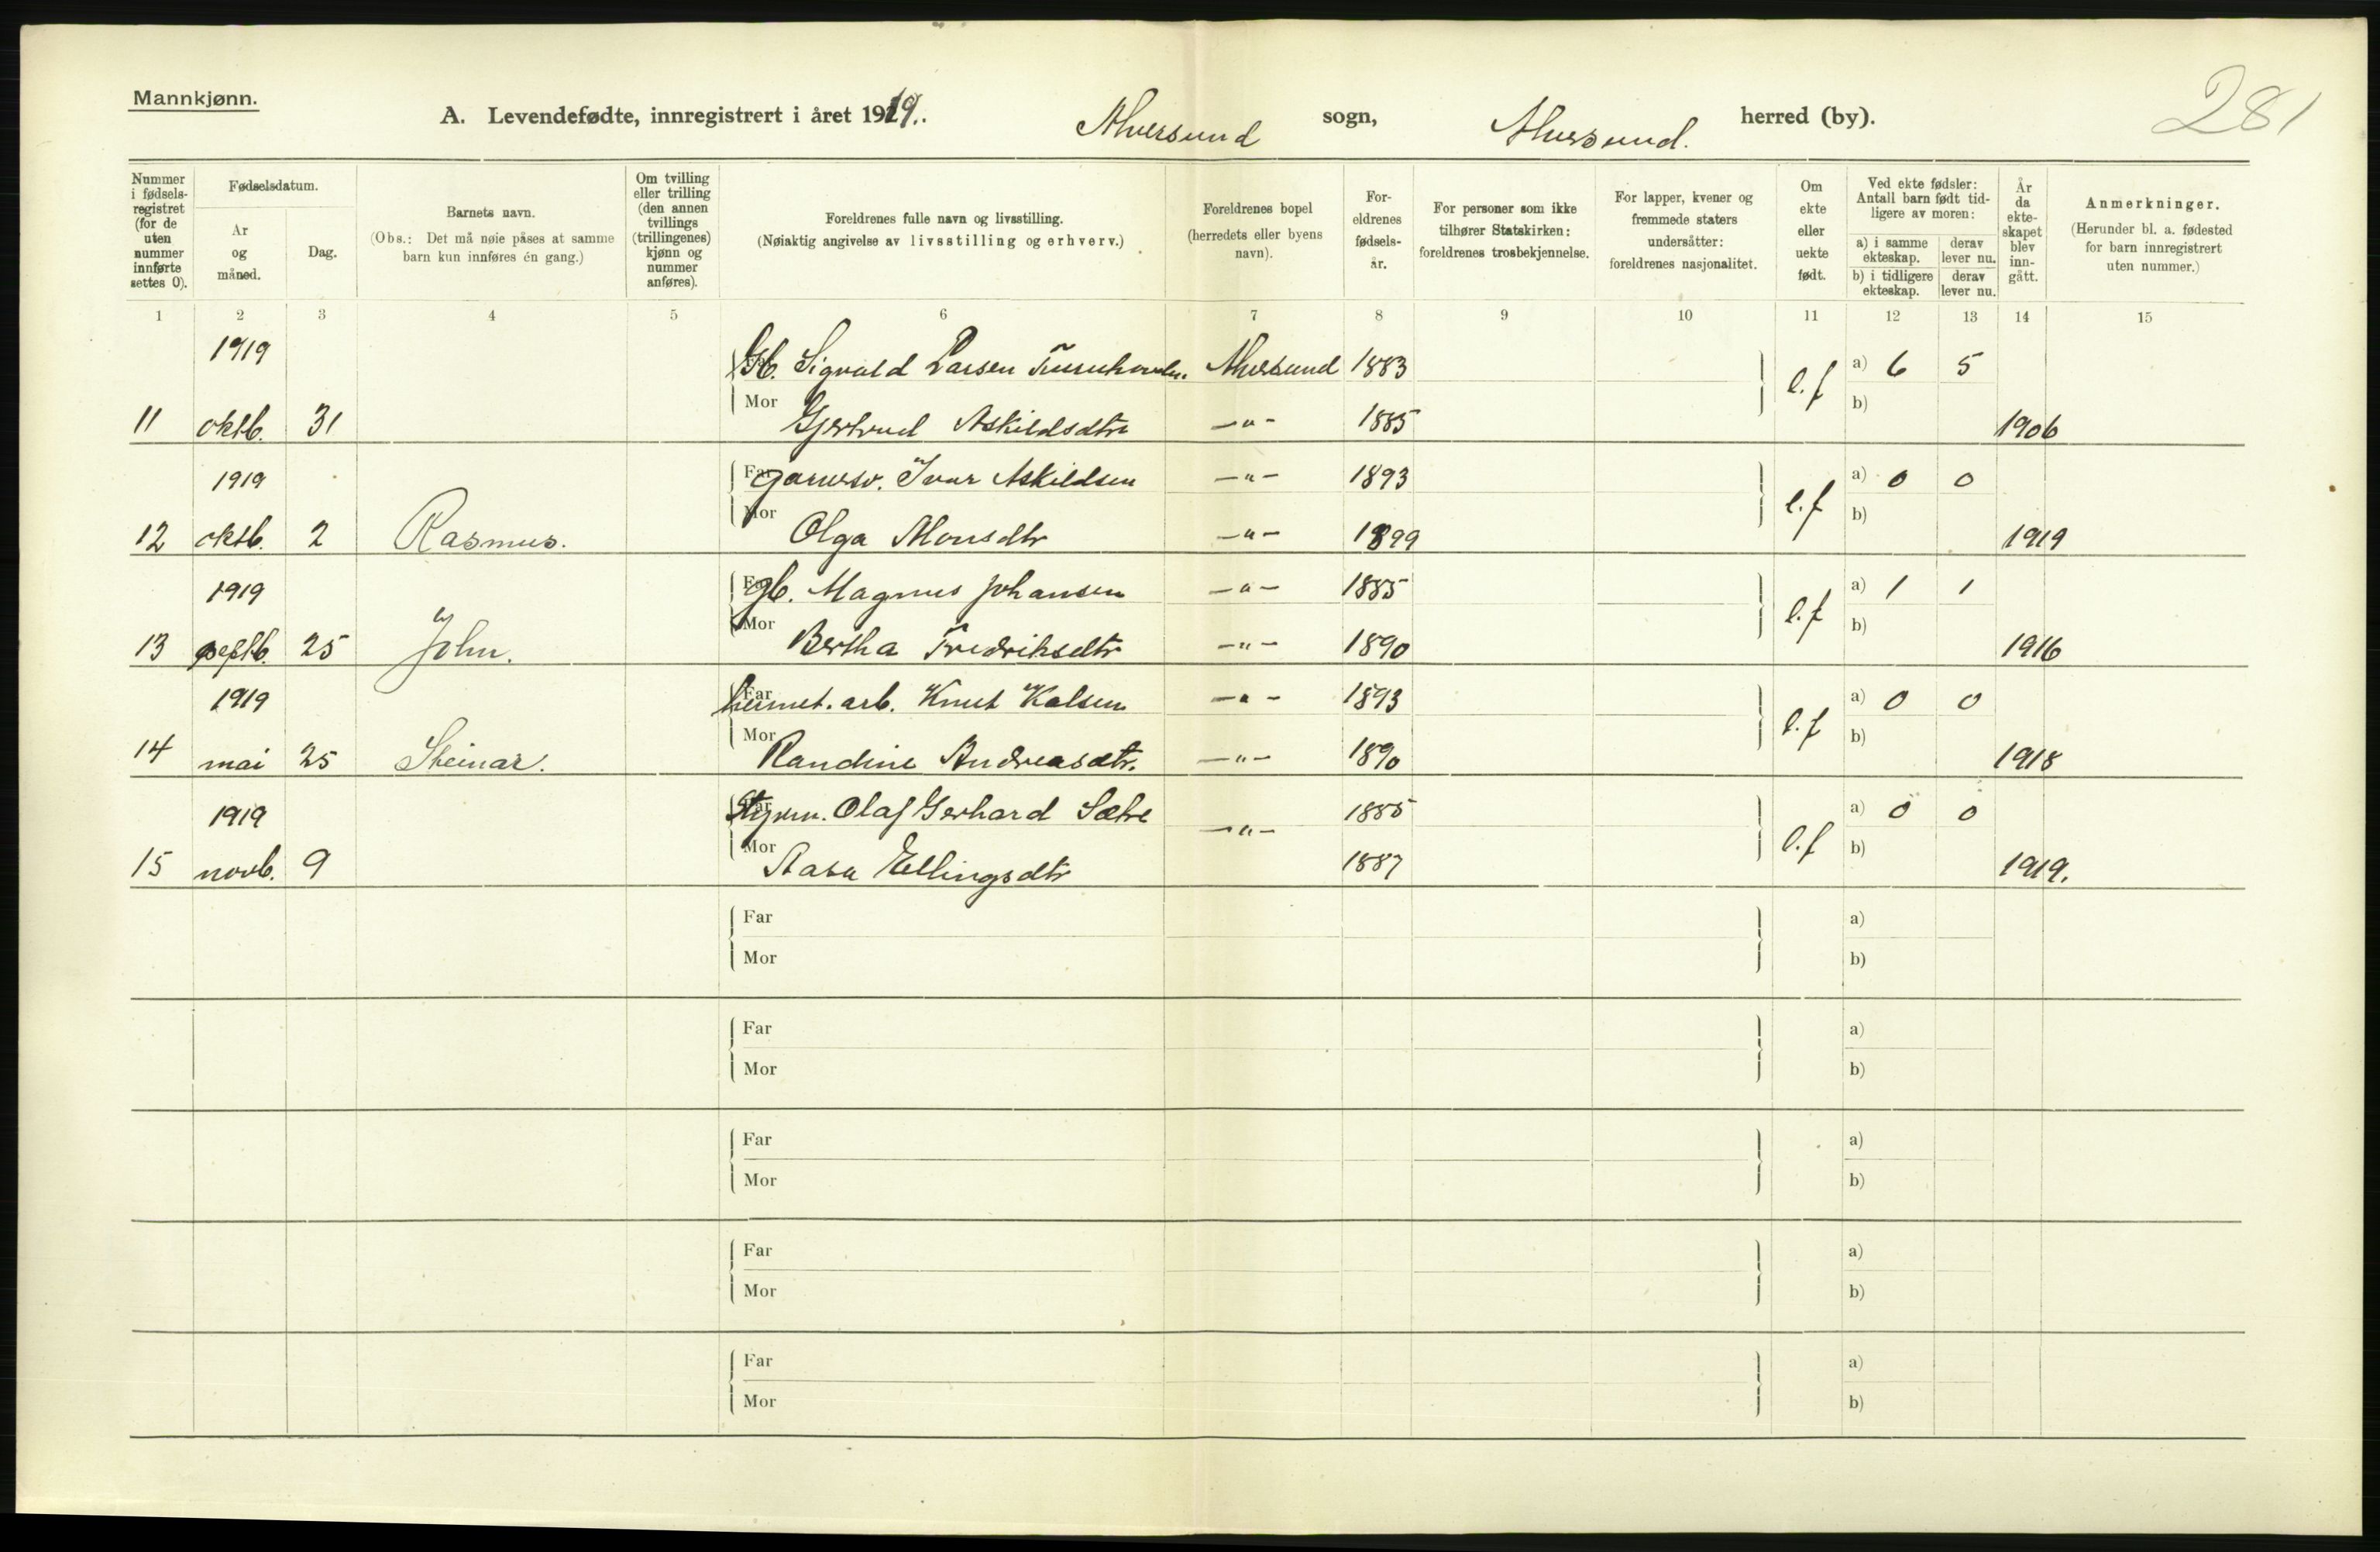 Mannkjønn.
281
A. Levendefødte, innregistrert i året 1919. Alversund sogn, Alversund. herred (by).
Nummer i fødsels-registret (for de uten nummer innførte settes 0).
Fødselsdatum.
År og måned.
Dag.
Barnets navn.
(Obs.: Det må nøie påses at samme barn kun innføres én gang.)
Om tvilling eller trilling (den annen tvillings (trillingenes) kjønn og nummer anføres).
Foreldrenes fulle navn og livsstilling.
(Nøiaktig angivelse av livsstilling og erhverv.)
Foreldrenes bopel (herredets eller byens navn).
For-eldrenes fødsels-år.
For personer som ikke tilhører Statskirken: foreldrenes trosbekjennelse.
For lapper, kvener og fremmede staters undersåtter: foreldrenes nasjonalitet.
Om ekte eller uekte født.
Ved ekte fødsler: Antall barn født tid-ligere av moren:
a) i samme ekteskap.
derav lever nu.
b) i tidligere ekteskap.
derav lever nu.
År da ekte-skapet blev inn-gått.
Anmerkninger.
(Herunder bl. a. fødested for barn innregistrert uten nummer.)
1 2 3 4 5 6 7 8 9 10 11 12 13 14 15
1919 Gb. Sigvald Larsen Alversund 1883 e.f a) 6 5
11 oktb. 31 Mor Gjertrud Askildsdtr —"— 1885 b) 1906
1919 Far Ivar Askildsen —"— 1893 e.f a) 0 0
12 oktb. 2 Rasmus. Mor Olga Monsdtr —"— 1899 b) 1919
1919 Far Gb. Magnus Johansen —"— 1885 e.f a) 1 1
13 septb. 25 John. Mor Bertha Fredriksdtr —"— 1890 b) 1916
1919 Far hermet. arb. Knut Kolsen —"— 1893 e.f a) 0 0
14 mai 25 Steinar. Mor Randine Andreasdtr. —"— 1890 b) 1918
1919 Far Styrm. Olaf Gerhard Sætre —"— 1885 e.f a) 0 0
15 novb. 9 Mor Aasa Ellingsdtr 1887 b) 1919.
Far a)
Mor b)
Far a)
Mor b)
Far a)
Mor b)
Far a)
Mor b)
Far a)
Mor b)